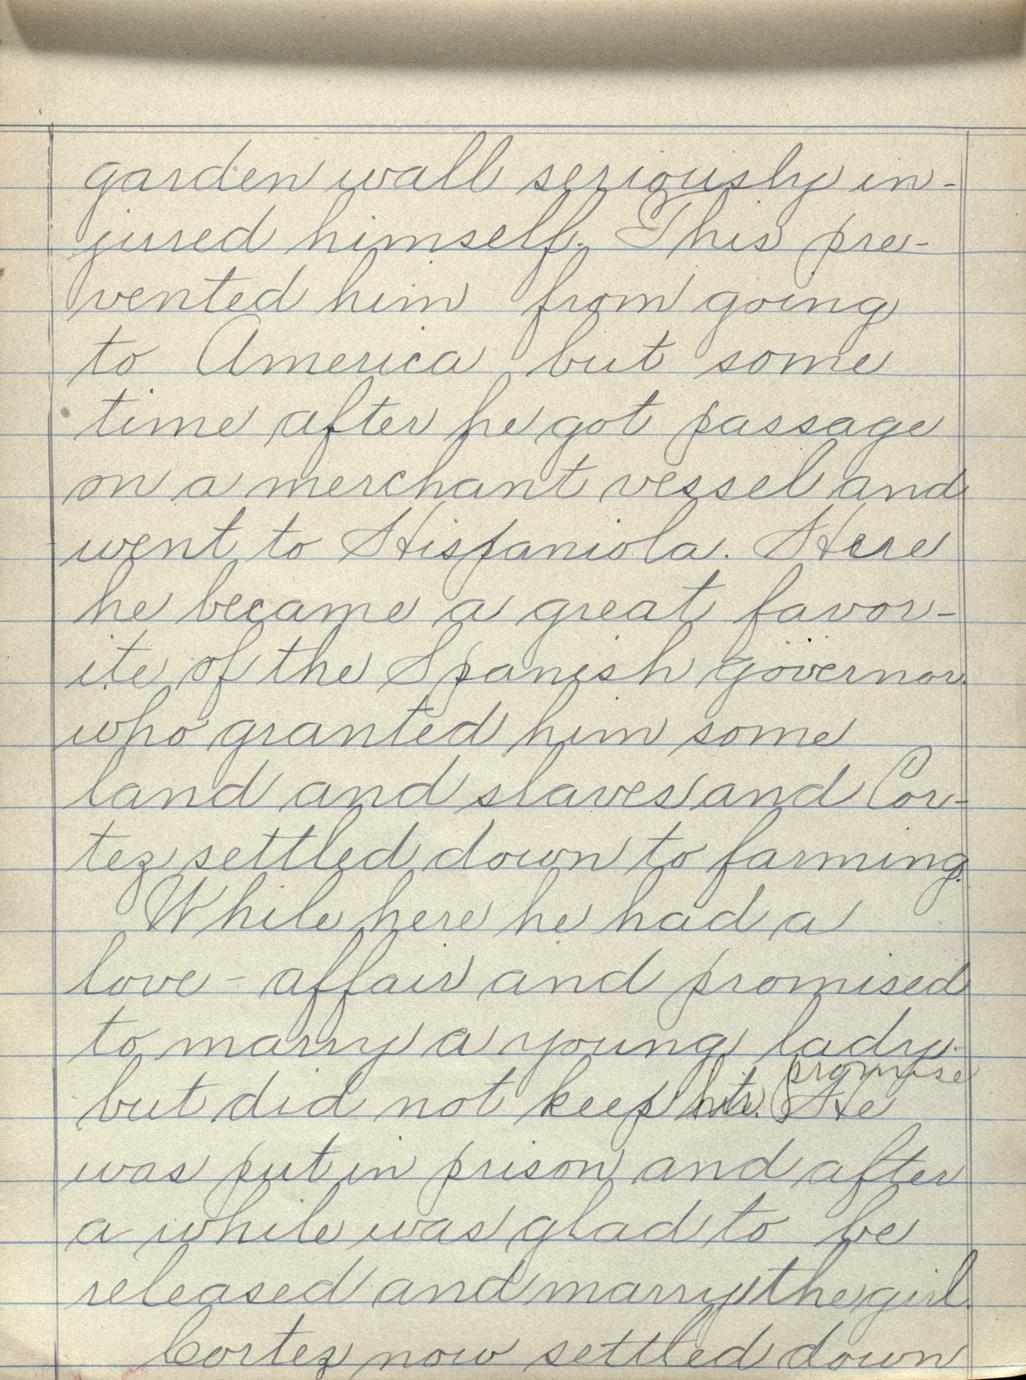 garden wall seriously in-
jured himself. This pre-
vented him from going
to America but some
time after he got passage
on a merchant vessel and
went to Hispaniola. Here
he became a great favor-
ite of the Spanish governor
who granted him some
land and slaves and Cor-
tez settled down to farming.
While here he had a
love-affair and promised
to marry a young lady
promise
but did not keep his. He
was put in prison and after
a while was glad to be
released and marry the girl.
Cortez now settled down